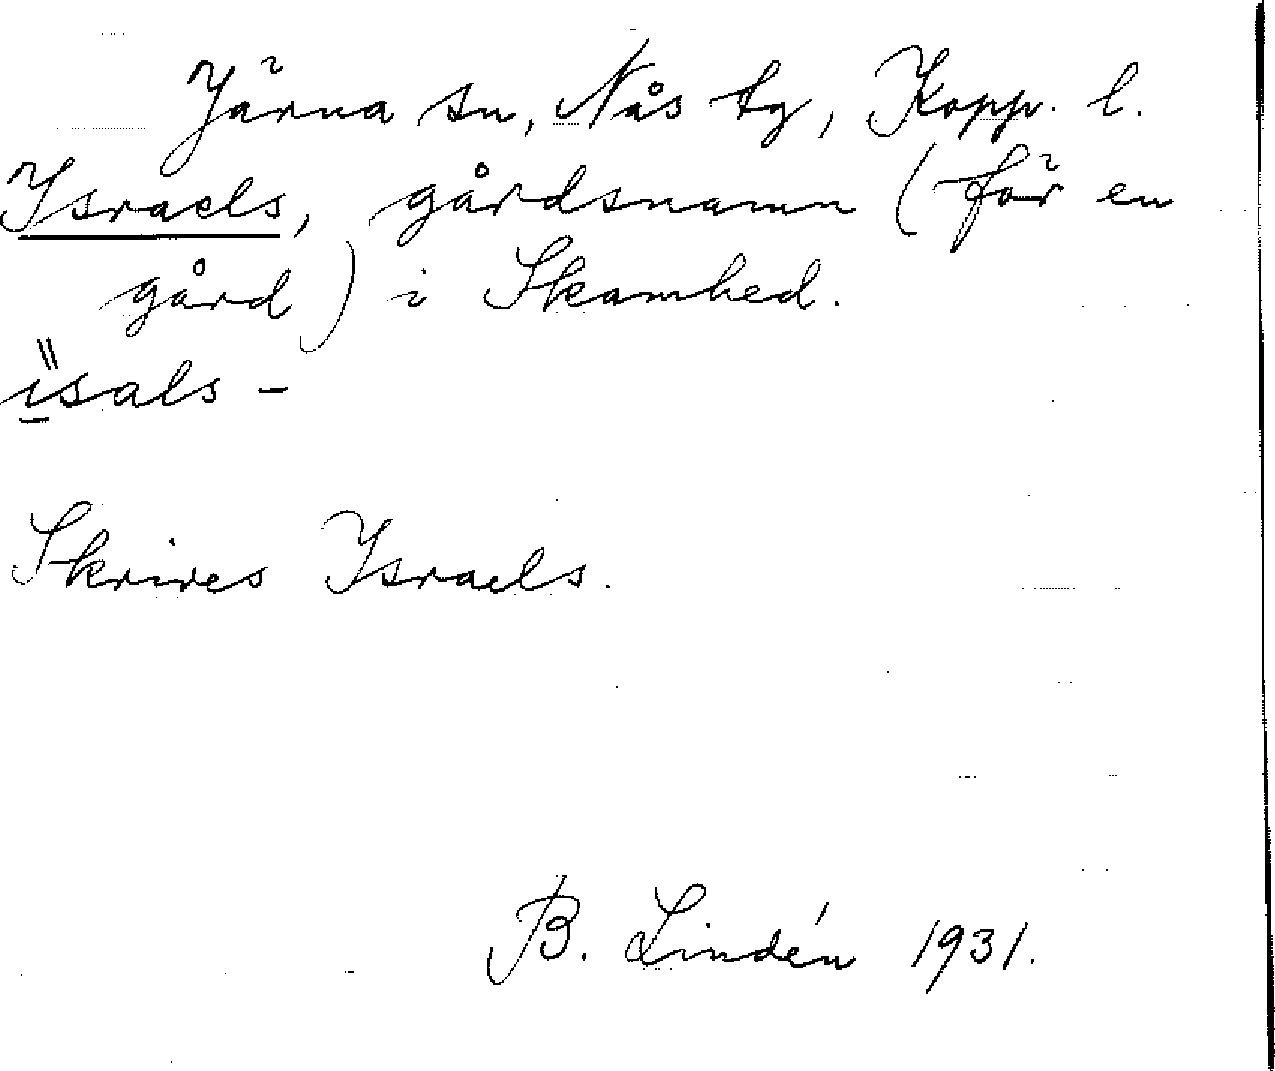 Järna sn, Nås tg, Kopp. l.
Israels, gårdsnamn (för en
gård) i Skamhed.
i̱̎sals -
Skrives Israels.
B. Lindén 1931.